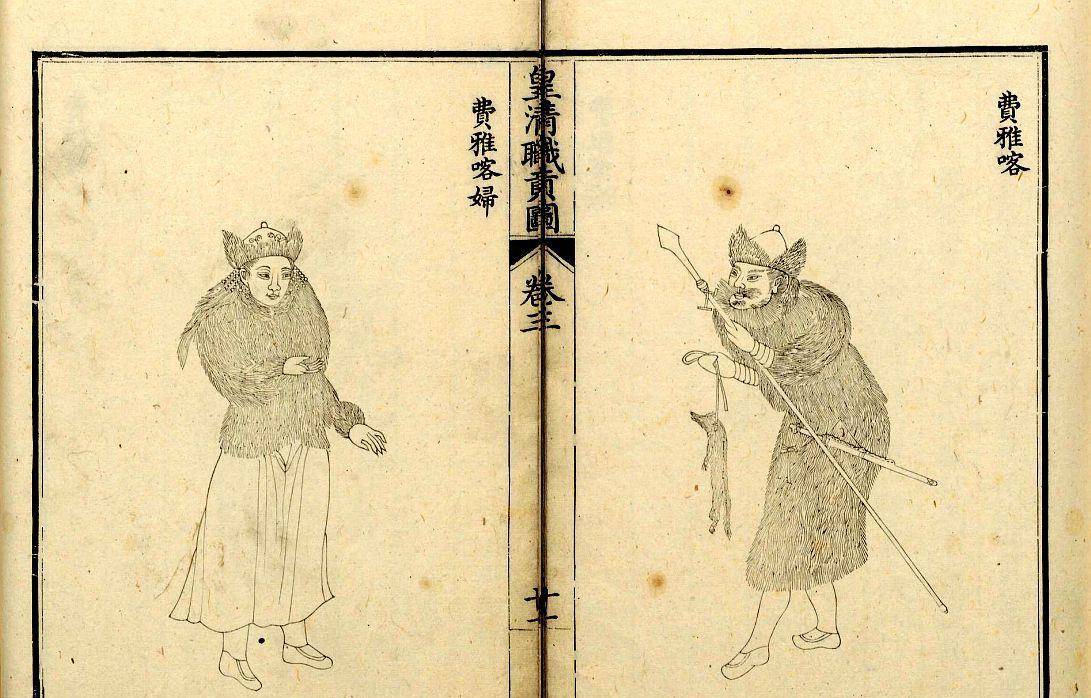 費雅喀
皇清職貢圖
卷三
廿一
費雅喀婦